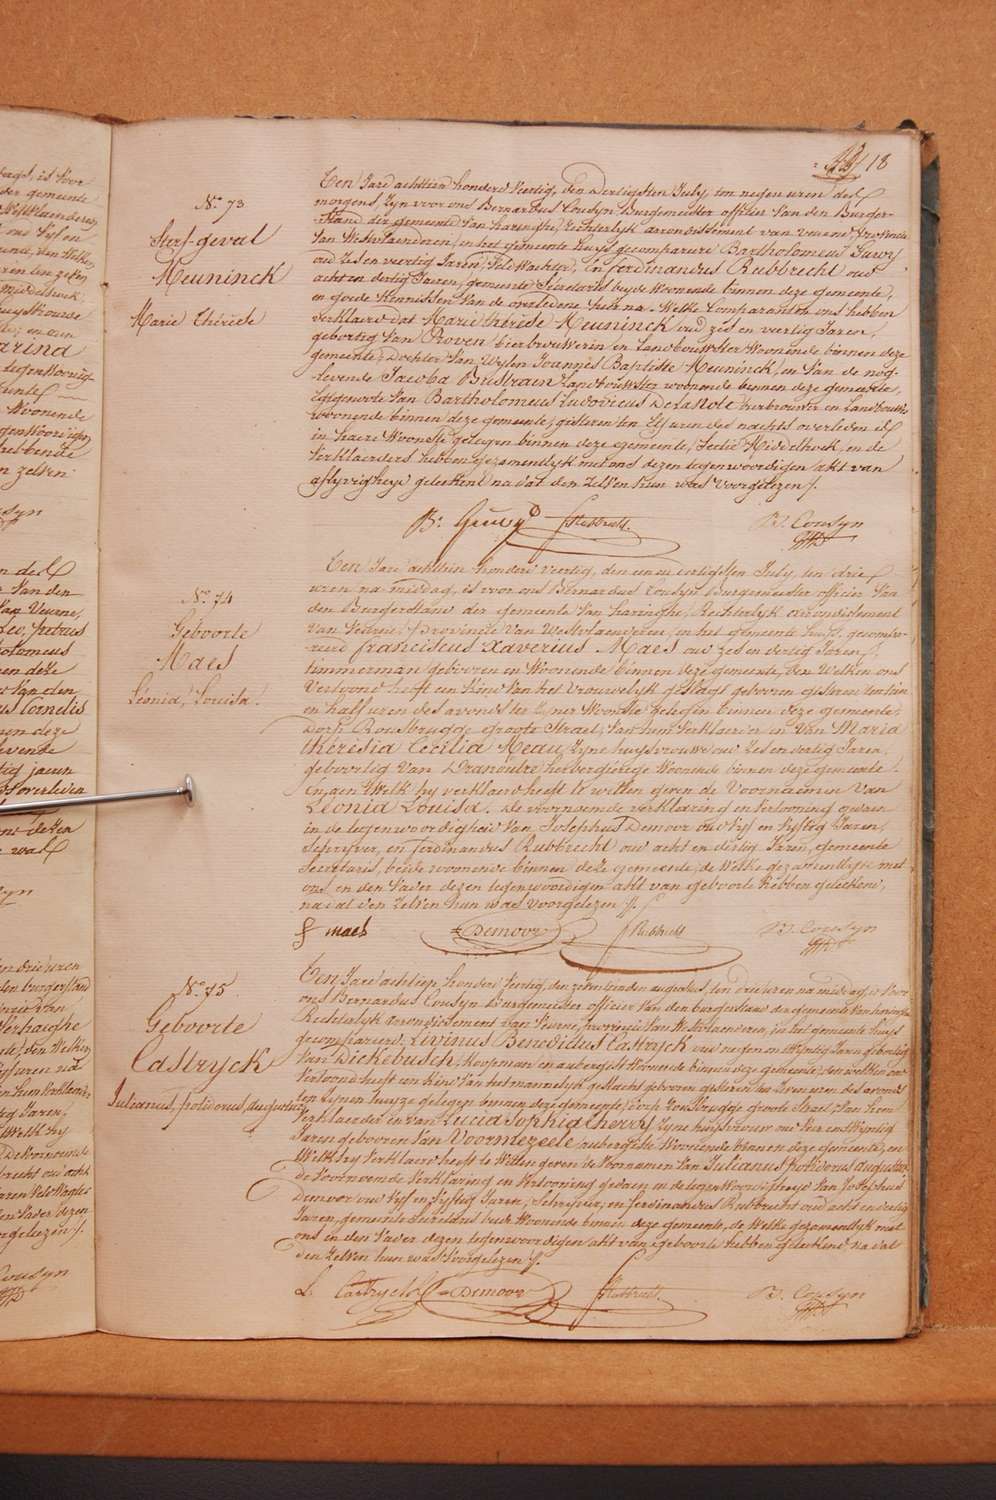 18
N.º 73
Sterf-geval
Meuninck
Marie Thérèse
Ten Jare achttien honderd veertig, den dertigsten July, ten negen uren des
morgens, zyn voor ons Bernardus Cousyn Burgemeester officier van den Burger-
stand der gemeente van haringhe, Rechterlyk arrondissement van veurne, provincie
van Westvlaenderen, in het gemeente huys gecompareerd Bartholomeus
oud zes en veertig Jaren, veld wachter, en ferdinandus Rubbrecht oud
acht en dertig Jaren, gemeente Secretaris beyde Woonende binnen deze gemeente,
en goede kennissen van de overledene hier na. Welke Comparanten ons hebben
verklaerd dat Marie thérèse Meuninck oud zes en veertig Jaren,
geboortig van Proven bierbrouwerin en Landbouwster Woonende binnen deze
gemeente, Dochter van wylen Joannes Baptiste Meuninck, en van de nog-
levende Jacoba Landbouwster woonende binnen deze gemeente,
Echtgenote van Bartholomeus Ludovicus Delanote bierbrouwer en Landbouwer
woonende binnen deze gemeente, gisteren ten Elf uren des nachts overleden is
in haere Woonste gelegen binnen deze gemeente, Sectie Middelhoek, en de
Verklaerders hebben gezamentlyk met ons dezen tegenwoordigen akt van
aflyvigheyd geteekent na dat den Zelven hun was Voorgelezen /.
Rubbrecht B. Cousyn
N.º 74
Geboorte
Maes
Léonia, Louisa.
Ten Jare achttien honderd veertig, den een en dertigsten July, ten drie
uren na middag, is voor ons Bernardus Cousyn Burgemeester officier van
den Burgerstand der gemeente van haringhe, Rechterlyk arrondissement
van Veurne, Provincie van Westvlaenderen, in het gemeente huys, gecompa-
reerd franciscus Xaverius Maes oud zes en dertig Jaren,
timmerman geboren en Woonende binnen deze gemeente, den Welken ons
Vertoond heeft een kind van het vrouwelyk geslagt geboren gisteren ten tien
en half uren des avonds ten zynen Wooste gelegen binnen deze gemeente,
Dorp Rousbrugge groote Straet, van hem Verklaerder en van Maria
theresia Cecilia Meau, zyne huysvrouwe oud zes en dertig Jaren,
geboortig van Dranoutre herbergierige Woonende binnen deze gemeente
en aen Welk hy verklaerd heeft te willen geven de Voornaemen van
Léonia Louisa. de voornoemde verklaring en vertooning gedaen
in de tegenwoordigheid van Josephus Demoor oud Vyf en vyftig Jaren,
Schryver, en ferdinandus Rubbrecht oud acht en dertig Jaren, gemeente
Secretaris, beide woonende binnen deze gemeente, de Welke gezamentlyk met
ons en den Vader dezen tegenwoordigen akt van geboorte hebben geteekend,
na dat den Zelven hun was Voorgelezen /.
maes Demoor Rubbrecht B. Cousyn
N.º 75
Geboorte
Castryck
Julianus, polidorus, augustus
Ten Jare achttien honderd veertig, den augustus, ten drie uren na middag, is voor
ons Bernardus Cousyn Burgemeester officier van den burgerstand der gemeente van haringhe
Rechterlyk arrondissement van Veurne, provincie van Westvlaenderen, in het gemeente huys
gecompareerd, Livinus Benedictus Castryck oud negen en twintig Jaren geboortig
van Dickebusch, koopman en aubergist Woonende binnen deze gemeente, den welken ons
Vertoond heeft een kind van het mannelyk geslacht geboren gisteren uren des avonds
ten zynen huyze gelegen binnen deze gemeente, dorp Rousbrugge groote Straet, van hem
Verklaerder en van Lucia Sophia Cherry zyne huysvrouw oud vier en twintig
Jaren geboren van Voormezeele, aubergiste Woonende binnen deze gemeente, en
Welk hy verklaerd heeft te willen geven de Voornamen van Julianus polidorus augustus
de voornoemde Verklaring en Vertooning gedaen in de tegenwoordigheyd van Josephus
Demoor oud vyf en vyftig Jaren, Schryver, en ferdinandus Rubbrecht oud acht en dertig
Jaren, gemeente Secretaris beide Woonende binnen deze gemeente, de Welke gezamentlyk met
ons en den Vader dezen tegenwoordigen akt van geboorte hebben geteekend na dat
den Zelven hun was Voorgelezen /.
L. Castryck Demoor Rubbrecht B. Cousyn